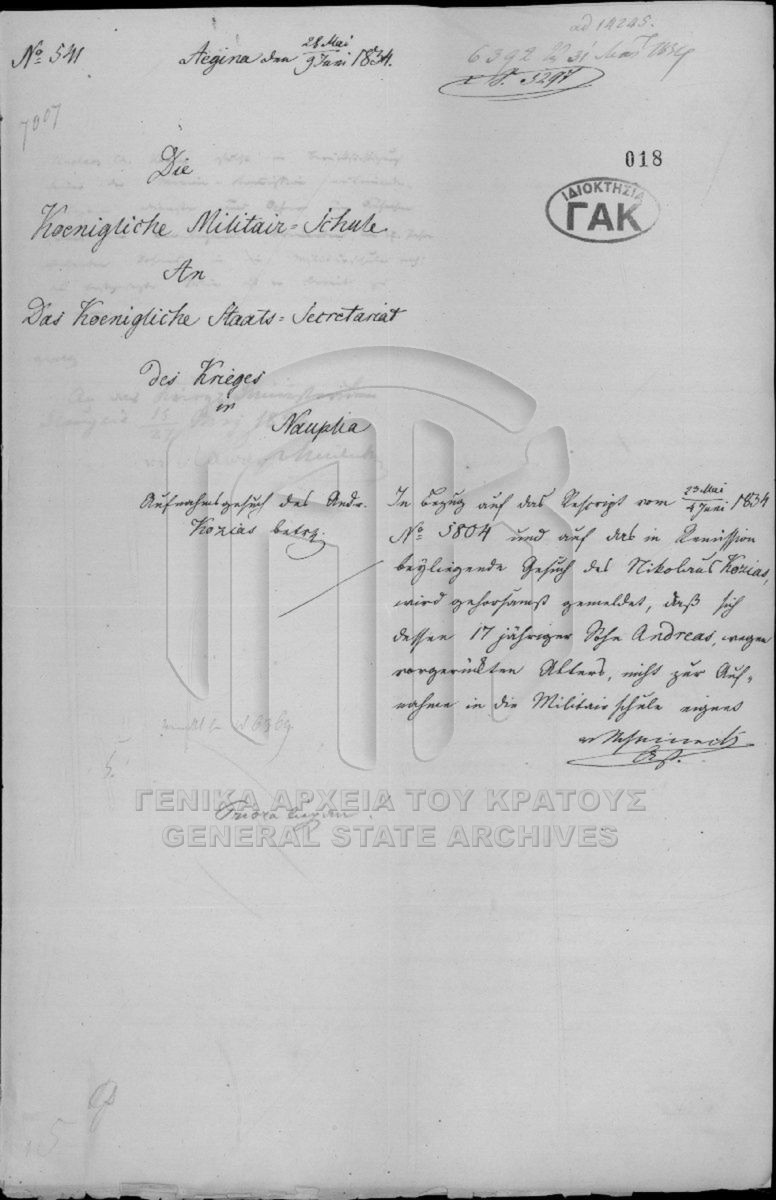 ad 14245.
No 541
Aegina den 28 Mai / 9 Juni 1834.
6392 31 Mai 1834
5297
7007
018
ΙΔΙΟΚΤΗΣΙΑ
ΓΑΚ
Die
Koenigliche Militair=Schule
An
Das Koenigliche Staats=Secretariat
des Krieges
in
Nauplia
Aufnahmsgesuch des Andr.
Kozias betrg.
In Bezug auf das Rescript vom 23 Mai / 4 Juni 1834
No 5804 und auf das in Remission
beyliegende Gesuch des Nikolaus Kozias,
wird gehorsamst gemeldet, daß sich
dessen 17 jähriger Sohn Andreas, wegen
vorgerückten Alters, nicht zur Auf=
nahme in die Militairschule eignet
ΓΕΝΙΚΑ ΑΡΧΕΙΑ ΤΟΥ ΚΡΑΤΟΥΣ
GENERAL STATE ARCHIVES